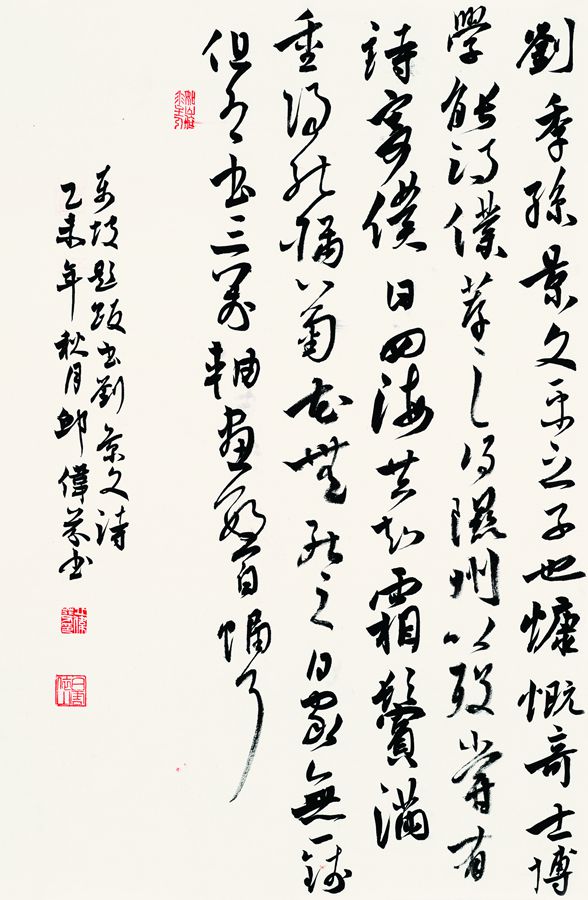 劉季孫景文平之子也慷慨奇士博
學能詩僕薦之得隰州以歿嘗有
詩寄僕曰四海共知霜鬢滿
重陽插菊花無死之日家無一錢
但有書三萬軸畫數百幅耳
東坡題跋書劉景文詩
乙未年秋月邱偉書